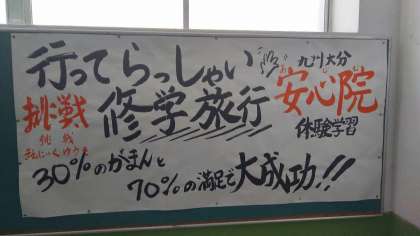 行ってらっしゃい
九州大分
挑戦
修学旅行
安心院
挑戦
体験学習
30%のがまんと
70%の満足で大成功!!